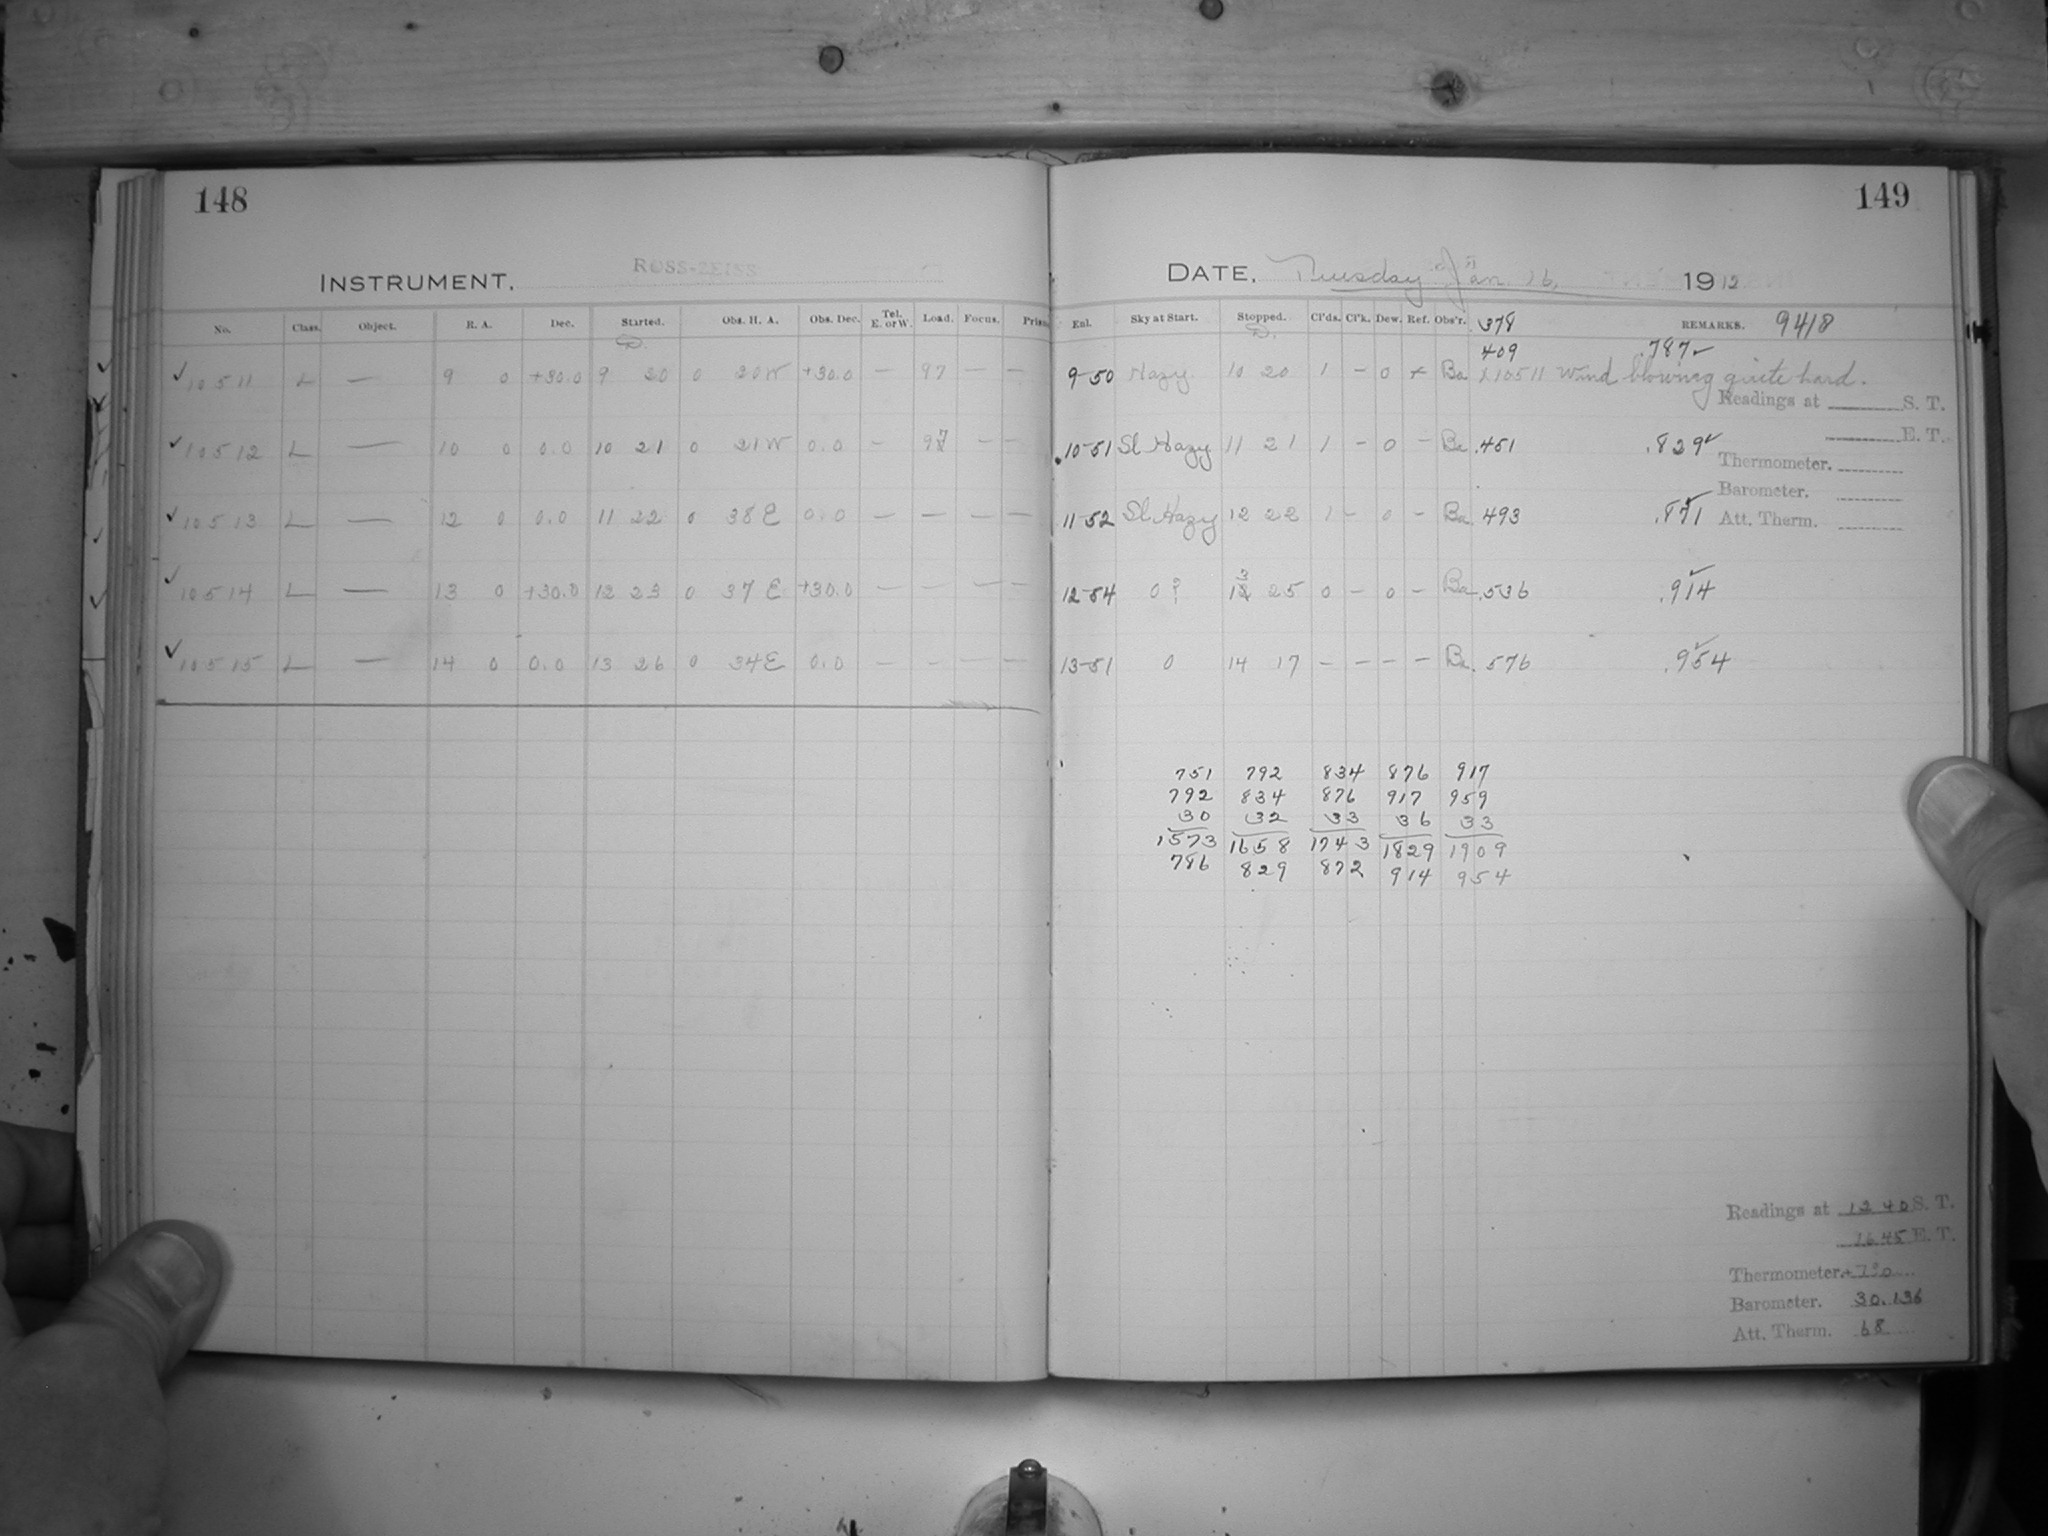 148
INSTRUMENT. ROSS-ZEISS
No. Class. Object. R. A. Dec. Started. Obs. H. A. Obs. Dec. Tel. E. or W. Load. Focus. Prism
10511 L — 9 0 +30.0 9 20 0 20W +30.0 — 97 — —
10512 L — 10 0 0.0 10 21 0 21W 0.0 — 97 — —
10513 L — 12 0 0.0 11 22 0 38E 0.0 — — — —
10514 L — 13 0 +30.0 12 23 0 37E +30.0 — — — —
10515 L — 14 0 0.0 13 26 0 34E 0.0 — — — —
149
DATE, Tuesday Jan. 16, 1912
Exl. Sky at Start. Stopped. Cl'ds. Cl'k. Dew. Ref. Obs'r. .378 REMARKS. 9418
.409 .787
9-50 Hazy 10 20 1 — 0 + Ba x10511 Wind blowing quite hard.
Readings at S. T.
E. T.
10-51 Sl Hazy 11 21 1 — 0 — Ba .451 .829
Thermometer.
Barometer.
11-52 Sl Hazy 12 22 1 — 0 — Ba .493 .871
Att. Therm.
12-54 0? 13 25 0 — 0 — Ba .536 .914
13-51 0 14 17 — — — — Ba .576 .954
751 792 834 876 917
792 834 876 917 959
30 32 33 36 33
1573 1658 1743 1829 1909
786 829 872 914 954
Readings at 12 40 S. T.
16 45 E. T.
Thermometer.
Barometer. 30.136
Att. Therm. 68